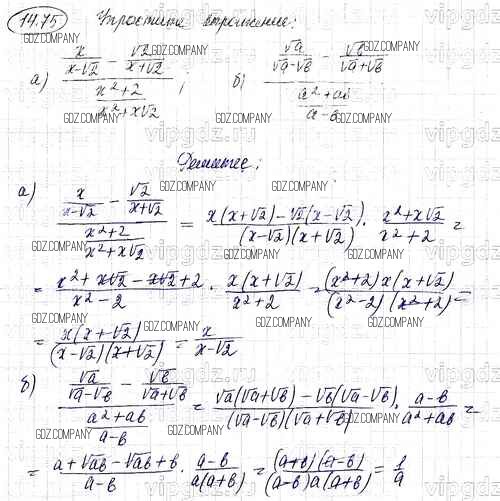 14.75. Упростить выражение:
а) \frac{\frac{x}{x-\sqrt{2}} - \frac{\sqrt{2}}{x+\sqrt{2}}}{\frac{x^2+2}{x^2+x\sqrt{2}}}; б) \frac{\frac{\sqrt{a}}{\sqrt{a}-\sqrt{b}} - \frac{\sqrt{b}}{\sqrt{a}+\sqrt{b}}}{\frac{a^2+ab}{a-b}}
Решение:
а) \frac{\frac{x}{x-\sqrt{2}} - \frac{\sqrt{2}}{x+\sqrt{2}}}{\frac{x^2+2}{x^2+x\sqrt{2}}} = \frac{x(x+\sqrt{2})-\sqrt{2}(x-\sqrt{2})}{(x-\sqrt{2})(x+\sqrt{2})} \cdot \frac{x^2+x\sqrt{2}}{x^2+2} =
= \frac{x^2+x\sqrt{2}-x\sqrt{2}+2}{x^2-2} \cdot \frac{x(x+\sqrt{2})}{x^2+2} = \frac{(x^2+2)x(x+\sqrt{2})}{(x^2-2)(x^2+2)} =
= \frac{x(x+\sqrt{2})}{(x-\sqrt{2})(x+\sqrt{2})} = \frac{x}{x-\sqrt{2}}
б) \frac{\frac{\sqrt{a}}{\sqrt{a}-\sqrt{b}} - \frac{\sqrt{b}}{\sqrt{a}+\sqrt{b}}}{\frac{a^2+ab}{a-b}} = \frac{\sqrt{a}(\sqrt{a}+\sqrt{b})-\sqrt{b}(\sqrt{a}-\sqrt{b})}{(\sqrt{a}-\sqrt{b})(\sqrt{a}+\sqrt{b})} \cdot \frac{a-b}{a^2+ab} =
= \frac{a+\sqrt{ab}-\sqrt{ab}+b}{a-b} \cdot \frac{a-b}{a(a+b)} = \frac{(a+b)(a-b)}{(a-b)a(a+b)} = \frac{1}{a}